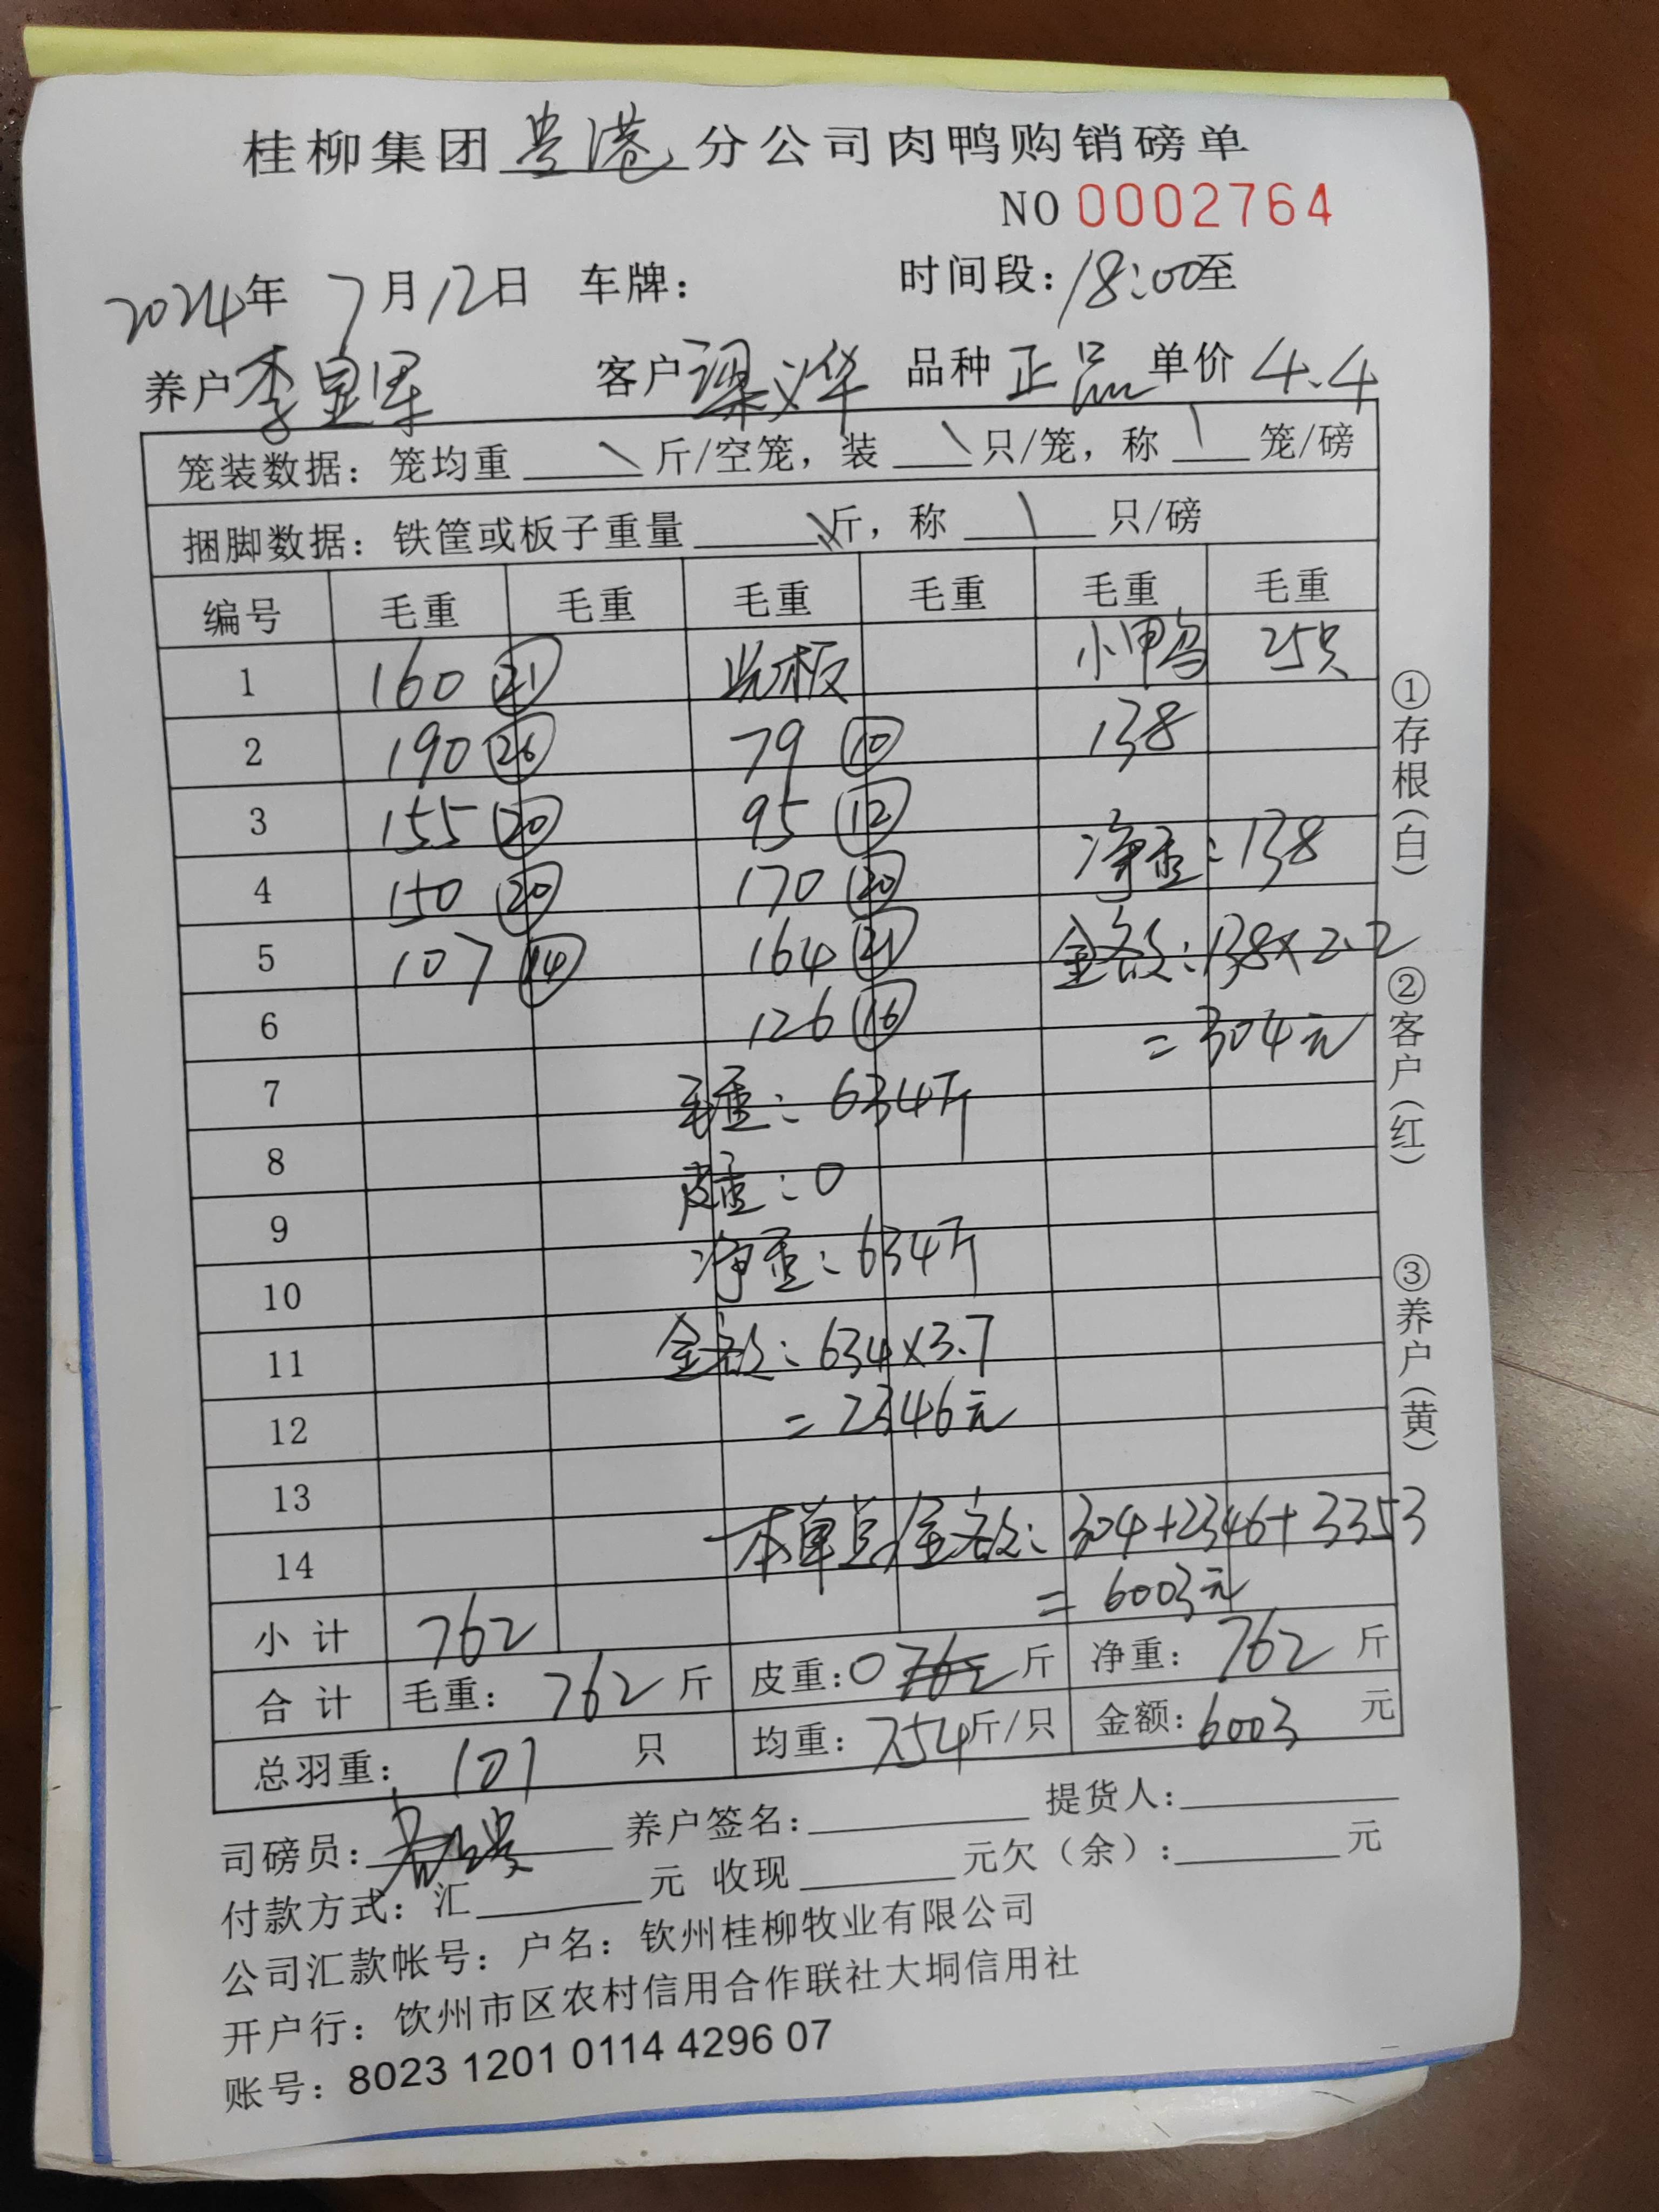 桂柳集团贵港分公司肉鸭购销磅单
NO 0002764
2024年 7月12日 车牌： 时间段：18:00至
养户 李 客户 梁 华 品种 正品 单价 4.4
笼装数据：笼均重 \ 斤/空笼，装 \ 只/笼，称 \ 笼/磅
捆脚数据：铁筐或板子重量 \ 斤，称 \ 只/磅
编号 毛重 毛重 毛重 毛重 毛重 毛重
1 160 ㉑ 光板 小鸭 25只
2 190 ㉖ 79 ⑩ 138
3 155 ⑳ 95 ⑫ 净重：138
4 150 ⑳ 170 ⑳
5 107 ⑭ 164 ㉑ 金额：138×2.2
6 126 ⑯ =304元
7 毛重：634斤
8 皮重：0
9 净重：634斤
10
11 金额：634×3.7
12 =2346元
13
14 本单总金额：304+2346+3353
=6003元
小计 762
合计 毛重：762斤 皮重：0 762 斤 净重：762斤
总羽重：101 只 均重：7.54斤/只 金额：6003 元
司磅员： 养户签名： 提货人：
付款方式：汇 元 收现 元欠（余）： 元
公司汇款帐号：户名：钦州桂柳牧业有限公司
开户行：钦州市区农村信用合作联社大垌信用社
账号：8023 1201 0114 4296 07
①存根（白） ②客户（红） ③养户（黄）